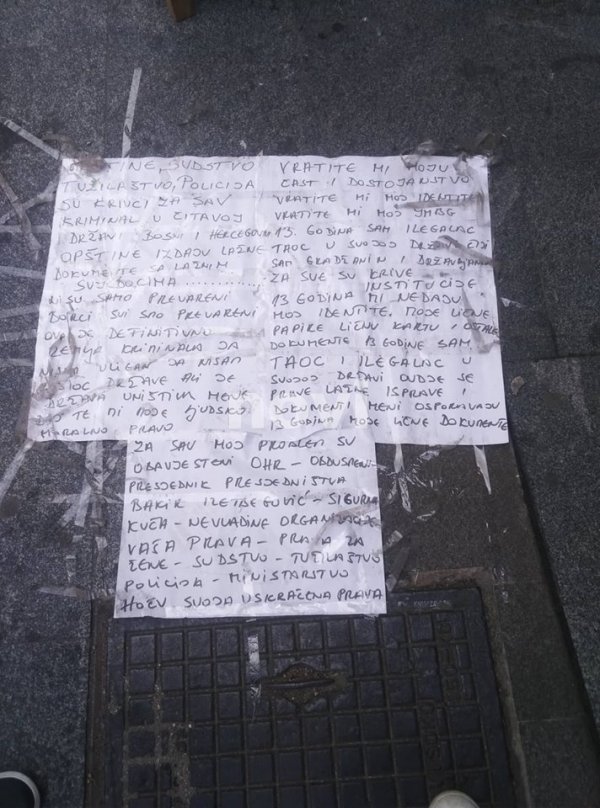 SUDSTVO
TUŽILAŠTVO, POLICIJA
SU KRIVCI ZA SAV
KRIMINAL U ČITAVOJ
DRŽAVI BOSNI I HERCEGOVINI
OPŠTINE IZDAJU LAŽNE
DOKUMENTE SA LAŽNIM
SVJEDOCIMA
NISU SAMO PREVARENI
BORCI SVI SMO PREVARENI
OVO JE DEFINITIVNO
ZEMLJA KRIMINALA JA
NISAM JA NISAM
DRŽAVE ALI JE
DRŽAVA UNIŠTILA MENE
TE MI MOJE LJUDSKO I
MORALNO PRAVO
VRATITE MI MOJU
ČAST I DOSTOJANSTVO
VRATITE MI MOJ IDENTITET
VRATITE MI MOJ JMBG
13. GODINA SAM ILEGALAC
TAOC U SVOJOJ DRŽAVI ČIJI
SAM GRAĐANIN I DRŽAVLJANIN
ZA SVE SU KRIVE
INSTITUCIJE
13 GODINA MI NEDAJU
MOJ IDENTITE, MOJE LIČNE
PAPIRE LIČNU KARTU I OSTALE
DOKUMENTE 13 GODINE SAM
TAOC I ILEGALAC U
SVOJOJ DRŽAVI OVDJE SE
PRAVE LAŽNE ISPRAVE I
DOKUMENTI MENI OSPORAVAJU
13 GODINA MOJE LIČNE DOKUMENTE
ZA SAV MOJ PROBLEM SU
OBAVJESTENI OHR - OBDUSMENI
PRESJEDNIK PRESJEDNIŠTVA
BAKIR IZETBEGOVIĆ - SIGURNA
KUĆA - NEVLADINE ORGANIZACIJE
VAŠA PRAVA - PRAVA ZA
ŽENE - SUDSTVO - TUŽILAŠTVO
POLICIJA - MINISTARSTVO
HOĆU SVOJA USKRAĆENA PRAVA